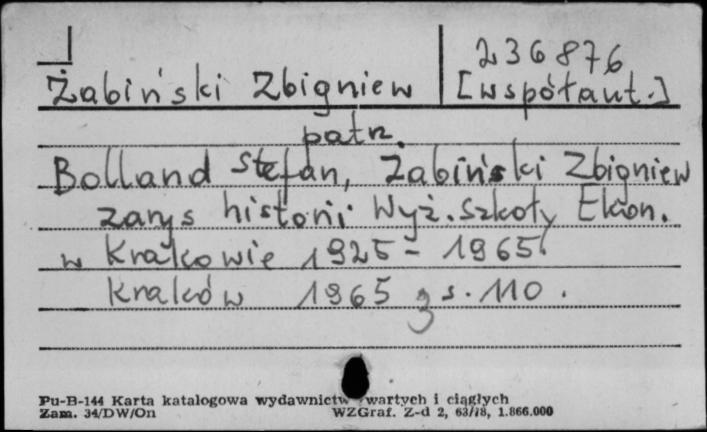 236876
Żabiński Zbigniew [współaut.]
patrz.
Bolland Stefan, Żabiński Zbigniew
zarys historii Wyż. Szkoły Ekon.
w Krakowie 1925 - 1965.
Kraków 1965 s. 110.
Pu-B-144 Karta katalogowa wydawnictw zwartych i ciągłych
Zam. 34/DW/On WZGraf. Z-d 2, 63/78, 1.866.000